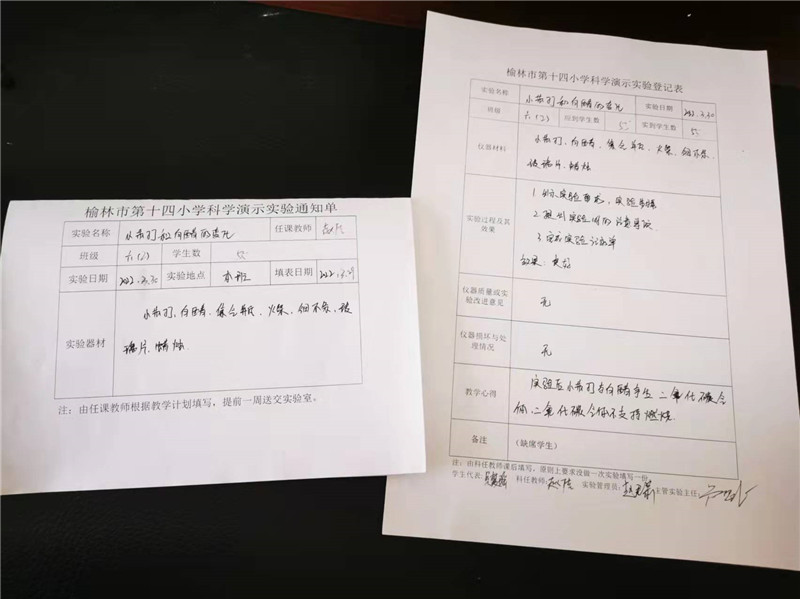 榆林市第十四小学科学演示实验通知单
实验名称 小苏打和白醋的变化 任课教师
班级 六(2) 学生数
实验日期 实验地点 本班 填表日期
实验器材
小苏打、白醋、集气瓶、火柴、细木条、玻
璃片、蜡烛
注：由任课教师根据教学计划填写，提前一周送交实验室。
榆林市第十四小学科学演示实验登记表
实验名称 小苏打和白醋的变化 实验日期
班级 六(2) 应到学生数 实到学生数
仪器材料
小苏打、白醋、集气瓶、火柴、细木条、
玻璃片、蜡烛
实验过程及其
效果
1. 实验
2. 实验 注意事项
3. 完成实验记录单
效果：良好
仪器质量或实
验改进意见
无
仪器损坏与处
理情况
无
教学心得
实验 小苏打与白醋产生二氧化碳气
体,二氧化碳气体不支持燃烧.
备注 (缺席学生)
注：由科任教师课后填写，原则上要求没做一次实验填写一份
学生代表: 科任教师: 实验管理员: 主管实验主任: